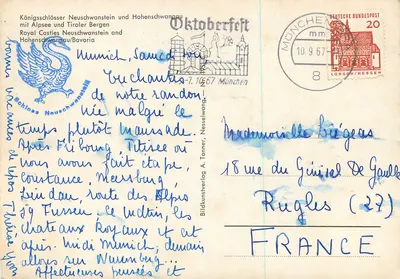 Königsschlösser Neuschwanstein und Hohenschwangau
mit Alpsee und Tiroler Bergen
Royal Castles Neuschwanstein and
Hohenschwangau/Bavaria
Schloss Neuschwanstein
Munich, Samedi
Enchantés
de notre randon
née malgré le
temps plutôt maussade.
Après Fribourg, Titisée où
nous avons fait étape,
Constance, Meersburg,
Lindau, route des Alpes
Füssen. Ce matin, les
châteaux Royaux et cet
après-midi Munich, demain
allons sur Nuremberg...
Affectueuses pensées et
bonnes vacances
Bildkunstverlag A. Tanner, Nesselwang
Oktoberfest
1.10.67 München
MÜNCHEN
10.9.67
8
DEUTSCHE BUNDESPOST
20
LORSCH/HESSEN
Mademoiselle
18 rue du Général de Gaulle
Rugles (27)
FRANCE